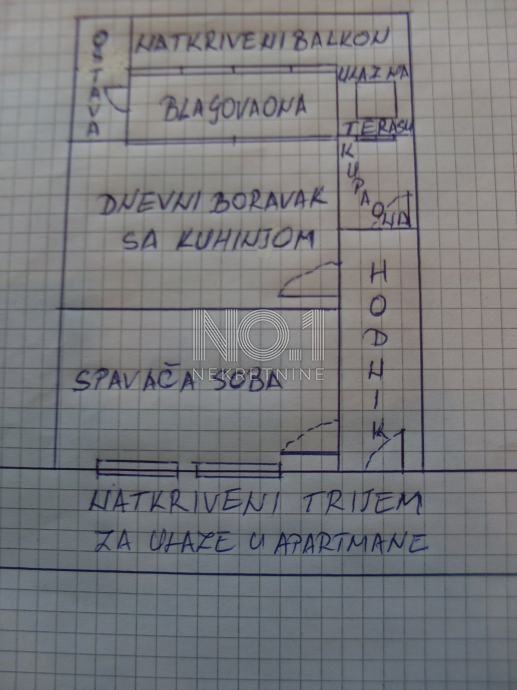 OSTAVA
NATKRIVENI BALKON
BLAGOVAONA
ULAZ NA
TERASU
KUPAONA
DNEVNI BORAVAK
SA KUHINJOM
HODNIK
NO.1
NEKRETNINE
SPAVAČA SOBA
NATKRIVENI TRIJEM
ZA ULAZE U APARTMANE